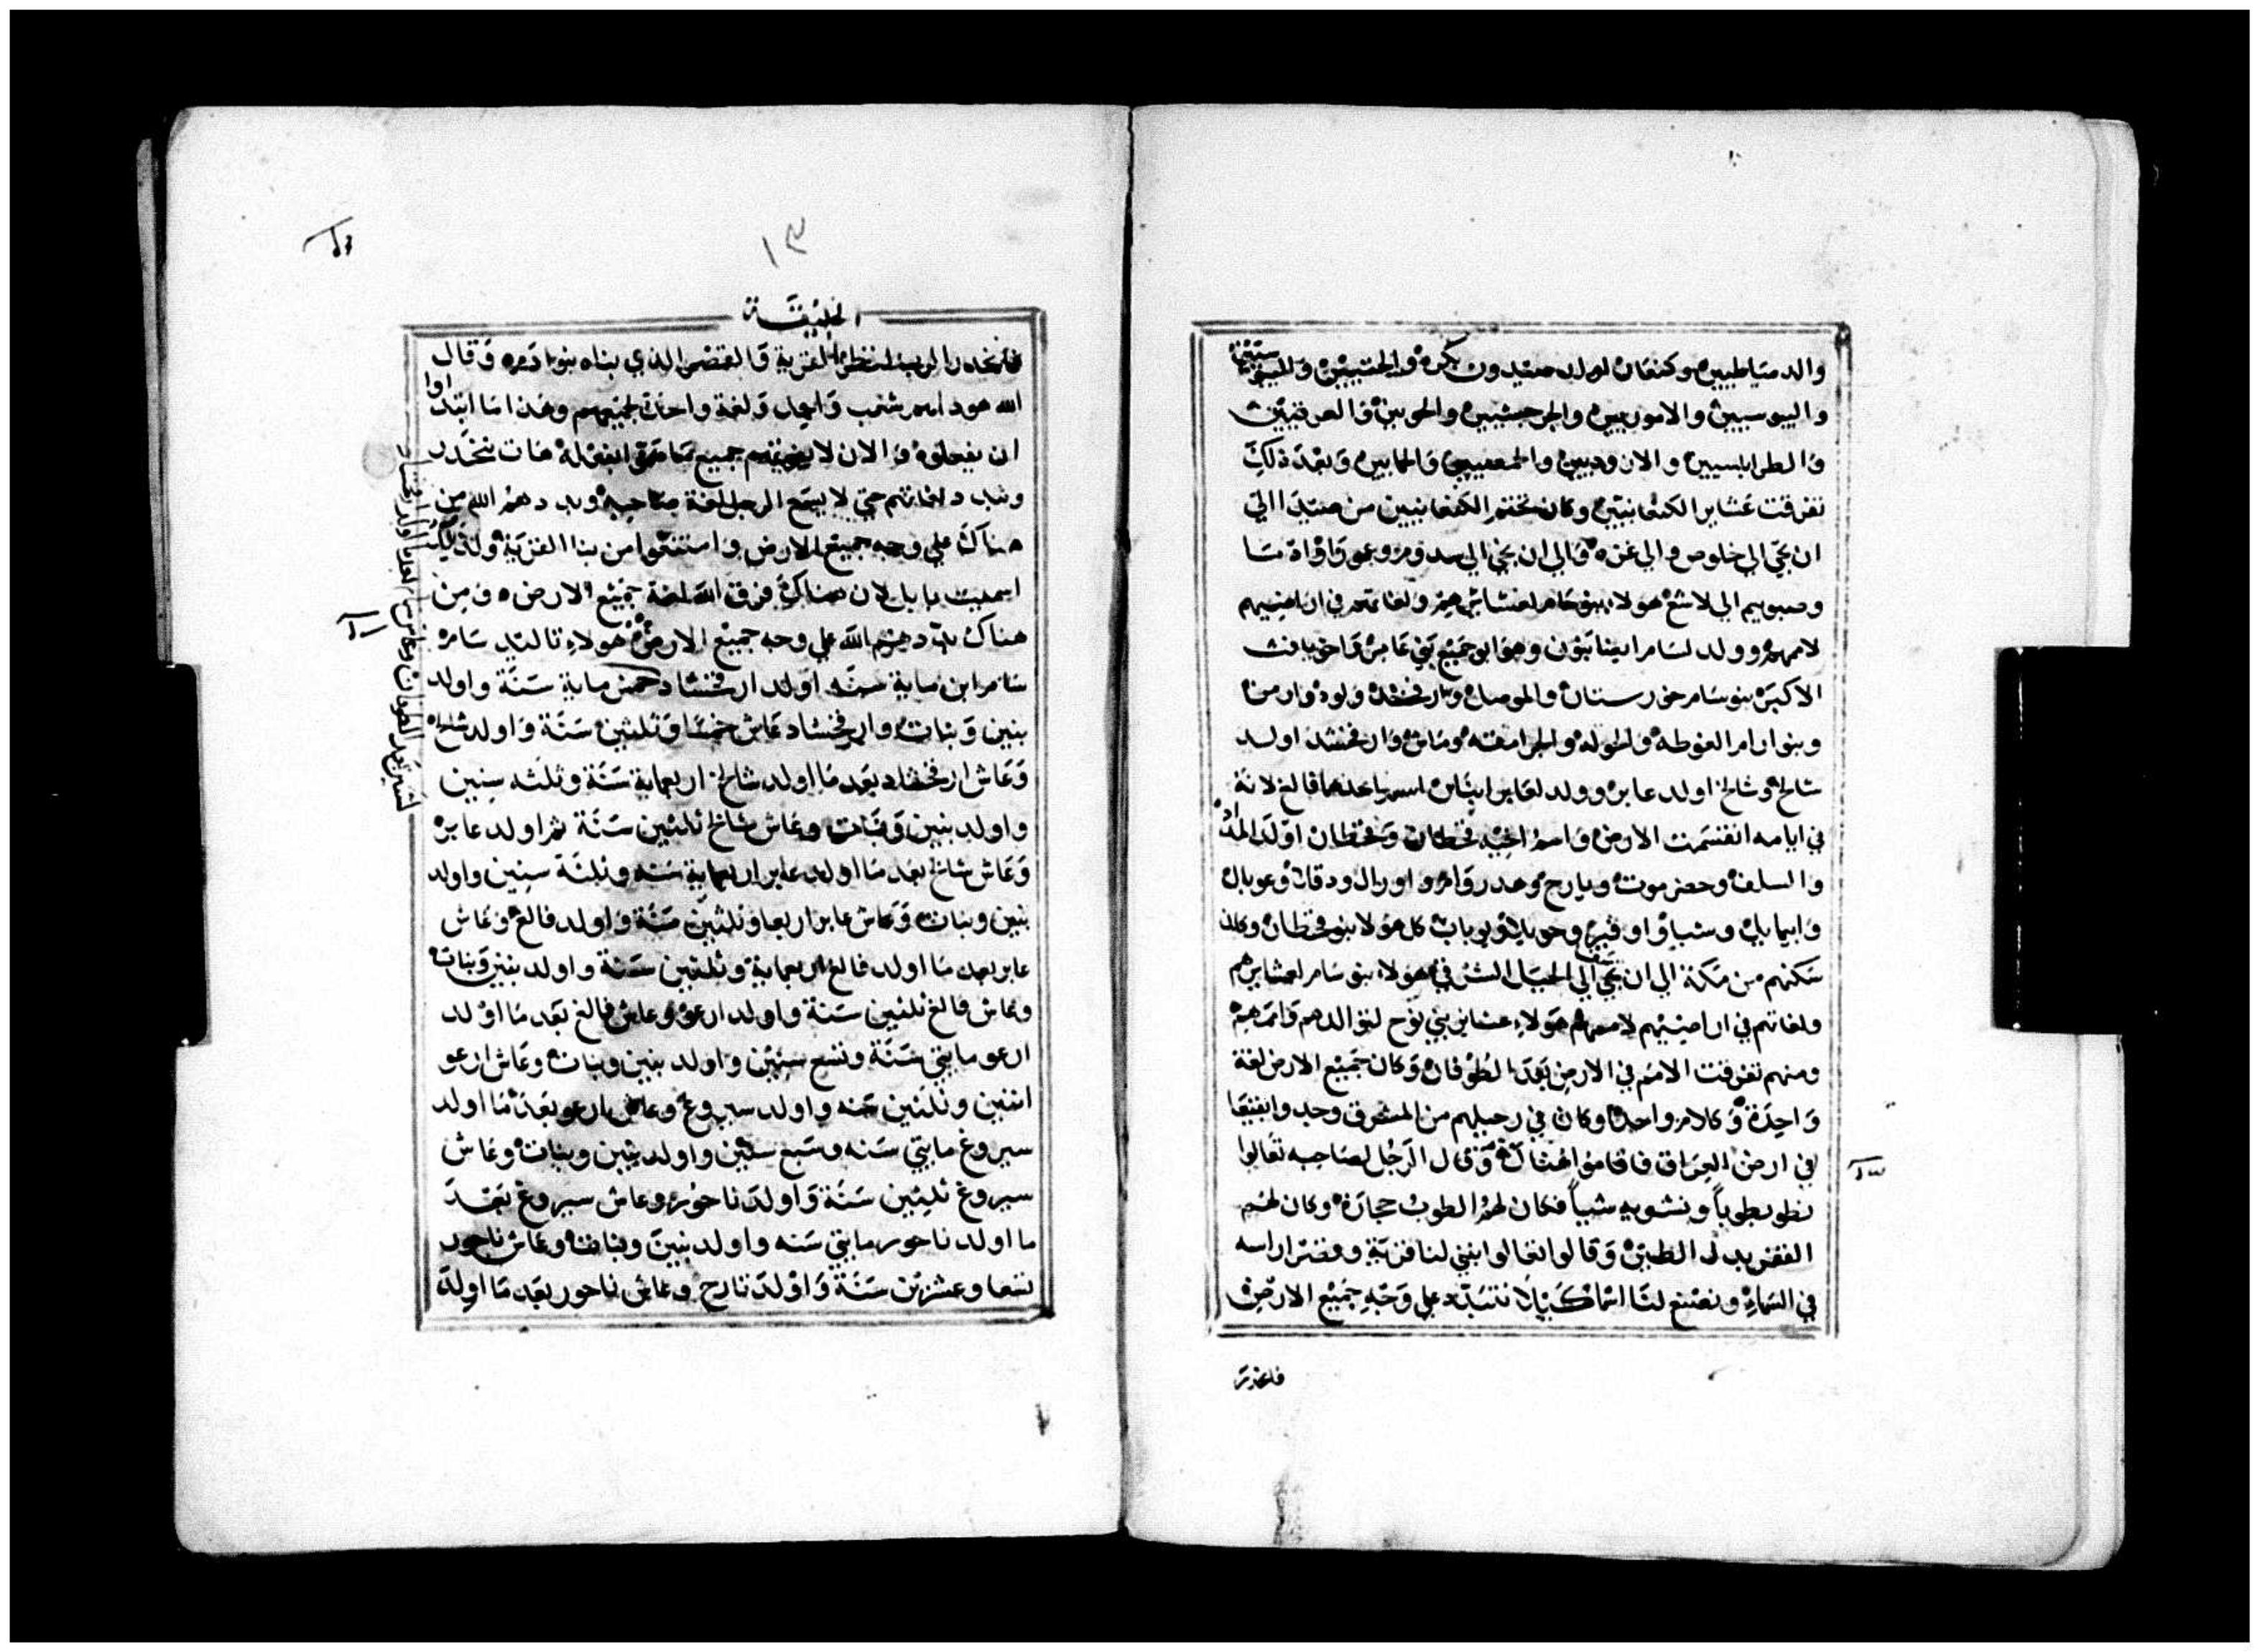 والدمياطيين وكنعان اولد صيدون بكره والحتيين
واليبوسيين والاموريين والجرجسيين والحويين والعرقيين
والطرابلسيين والاروديين والحمصيين والحمايين وبعد ذلك
تفرقت عشاير الكنعانيين وكان تختم الكنعانيين من صيدا الي
ان تجي الي خلوص والي غزه والي ان تجي الي سدوم وعمورا وادما
وصبوييم الي لاشع هولاء بنو حام لعشايرهم ولغاتهم في اراضيهم
لاممهم وولد لسام ايضا بنون وهو ابو جميع بني عابر واخو يافث
الاكبر بنو سام خورستان والموصل وارفخشد ولود وارمن
وبنو ارام الغوطه والحوله والجرامقه وماش وارفخشد اولد
شالخ وشالخ اولد عابر وولد لعابر ابنان اسم احدهما فالغ لانه
في ايامه انقسمت الارض واسم اخيه قحطان وقحطان اولد المداد
والسلف وحضرموت ويارح وهدورام واوزال ودقلا وعوبال
وابيمايل وشبا واوفير وحويلا ويوباب كل هولا بنو قحطان وكان
سكنهم من مكة الي ان تجي الي الجبال الشرقي هولاء بنو سام لعشايرهم
ولغاتهم في اراضيهم لاممهم هولاء عشاير بني نوح لتوالدهم واممهم
ومنهم تفرقت الامم في الارض بعد الطوفان وكان جميع الارض لغة
واحدة وكلام واحد وكان في رحيلهم من المشرق وجدوا بقيعا
في ارض العراق فاقاموا هناك وقال الرجل لصاحبه تعالوا
نطوب طوبا ونشويه شيا فكان لهم الطوب حجارة وكان لهم
القفر بدل الطين وقالوا تعالوا نبني لنا قرية وقصرا راسه
في السماء ونصنع لنا اسما كيلا نتبدد علي وجه جميع الارض
فانحدر
١٣
الخليقة
فانحدر الرب لينظر القرية والقصر الذي بناه بنو ادم وقال
الله هوذا هم شعب واحد ولغة واحدة لجميعهم وهذا ما ابتداوا
ان يفعلوه والان لا يفوتهم جميع ما هموا بفعله هات ننحدر
ونبدد لغاتهم حتي لا يسمع الرجل لغة صاحبه وبددهم الله من
هناك علي وجه جميع الارض وامتنعوا من بنا القرية ولذلك
اسميت بابل لان هناك فرق الله لغة جميع الارض ومن
هناك بددهم الله علي وجه جميع الارض هولاء تاليد سام
سام ابن ماية سنه اولد ارفخشاد خمس ماية سنة واولد
بنين وبنات وارفخشاد عاش خمسا وثلثين سنة واولد شالخ
وعاش ارفخشاد بعد ما اولد شالخ اربعماية سنة وثلثه سنين
واولد بنين وبنات وعاش شالخ ثلثين سنة ثم اولد عابر
وعاش شالخ بعد ما اولد عابر اربعماية سنه وثلثة سنين واولد
بنين وبنات وعاش عابر اربعا وثلثين سنة واولد فالغ وعاش
عابر بعد ما اولد فالغ اربعماية وثلثين سنة واولد بنين وبنات
وعاش فالغ ثلثين سنة واولد ارعو وعاش فالغ بعد ما اولد
ارعو مايتي سنة وتسع سنين واولد بنين وبنات وعاش ارعو
اثنين وثلثين سنه واولد سيروغ وعاش ارعو بعد ما اولد
سيروغ مايتي سنه وسبع سنين واولد بنين وبنات وعاش
سيروغ ثلثين سنة واولد ناحور وعاش سيروغ بعد
ما اولد ناحور مايتي سنه واولد بنين وبنات وعاش ناحور
تسعا وعشرين سنة واولد تارح وعاش ناحور بعد ما اولد